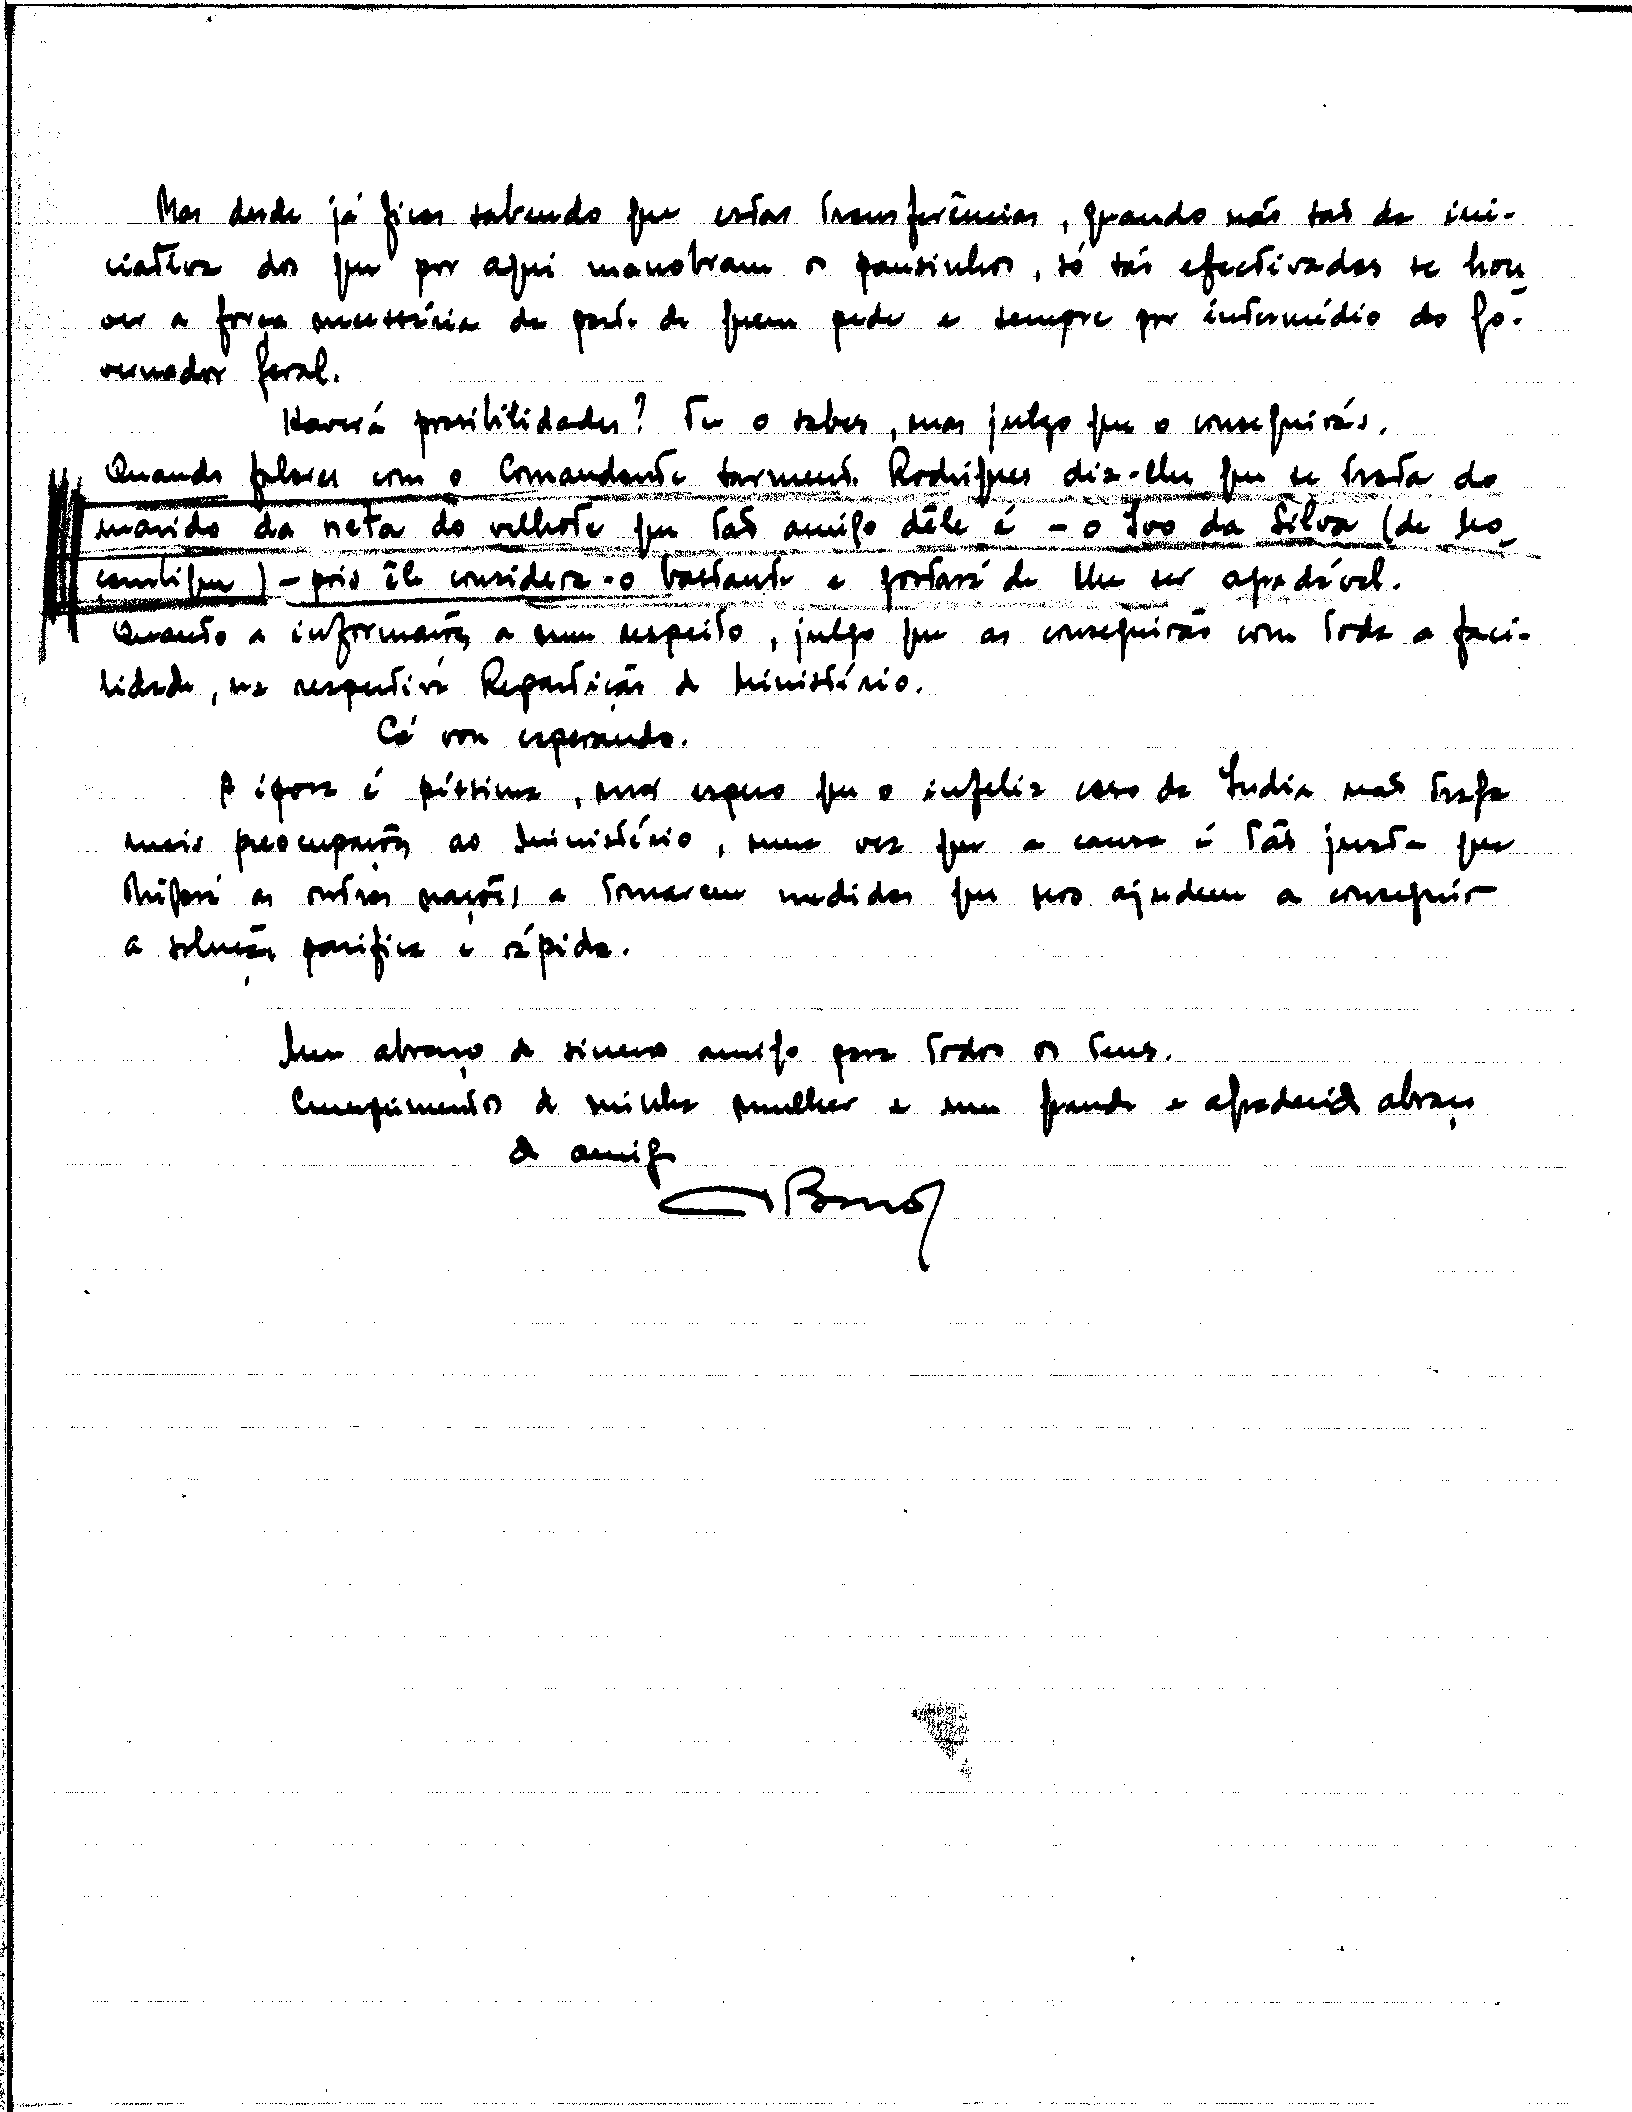 Mas desde já ficas sabendo que estas transferências, quando não são da ini-
ciativa dos que por aqui manobram os pausinhos, só são efectivadas se hou
ver a força necessária da parte de quem pede e sempre por intermédio do Go-
vernador Geral.
Haverá possibilidades? Tu o sabes, mas julgo que o conseguirás.
Quando falares com o Comandante Sarmento Rodrigues diz-lhe que se trata do
marido da neta do velhote que tão amigo dêle é - o Ivo da Silva (de Mo
çambique) - pois êle considera-o bastante e gostará de lhe ser agradável.
Quanto a informações a meu respeito, julgo que as conseguirás com toda a faci-
lidade, na respectiva Repartição do Ministério.
Cá vou esperando.
A época é péssima, mas espero que o infeliz caso da India não traga
mais preocupações ao Ministério, uma vez que a causa é tão justa que
obrigará as outras nações a tomarem medidas que nos ajudem a conseguir
a solução pacífica e rápida.
Um abraço de sincero amigo para todos os teus.
Cumprimentos de minha mulher e um grande e agradecido abraço
do amigo